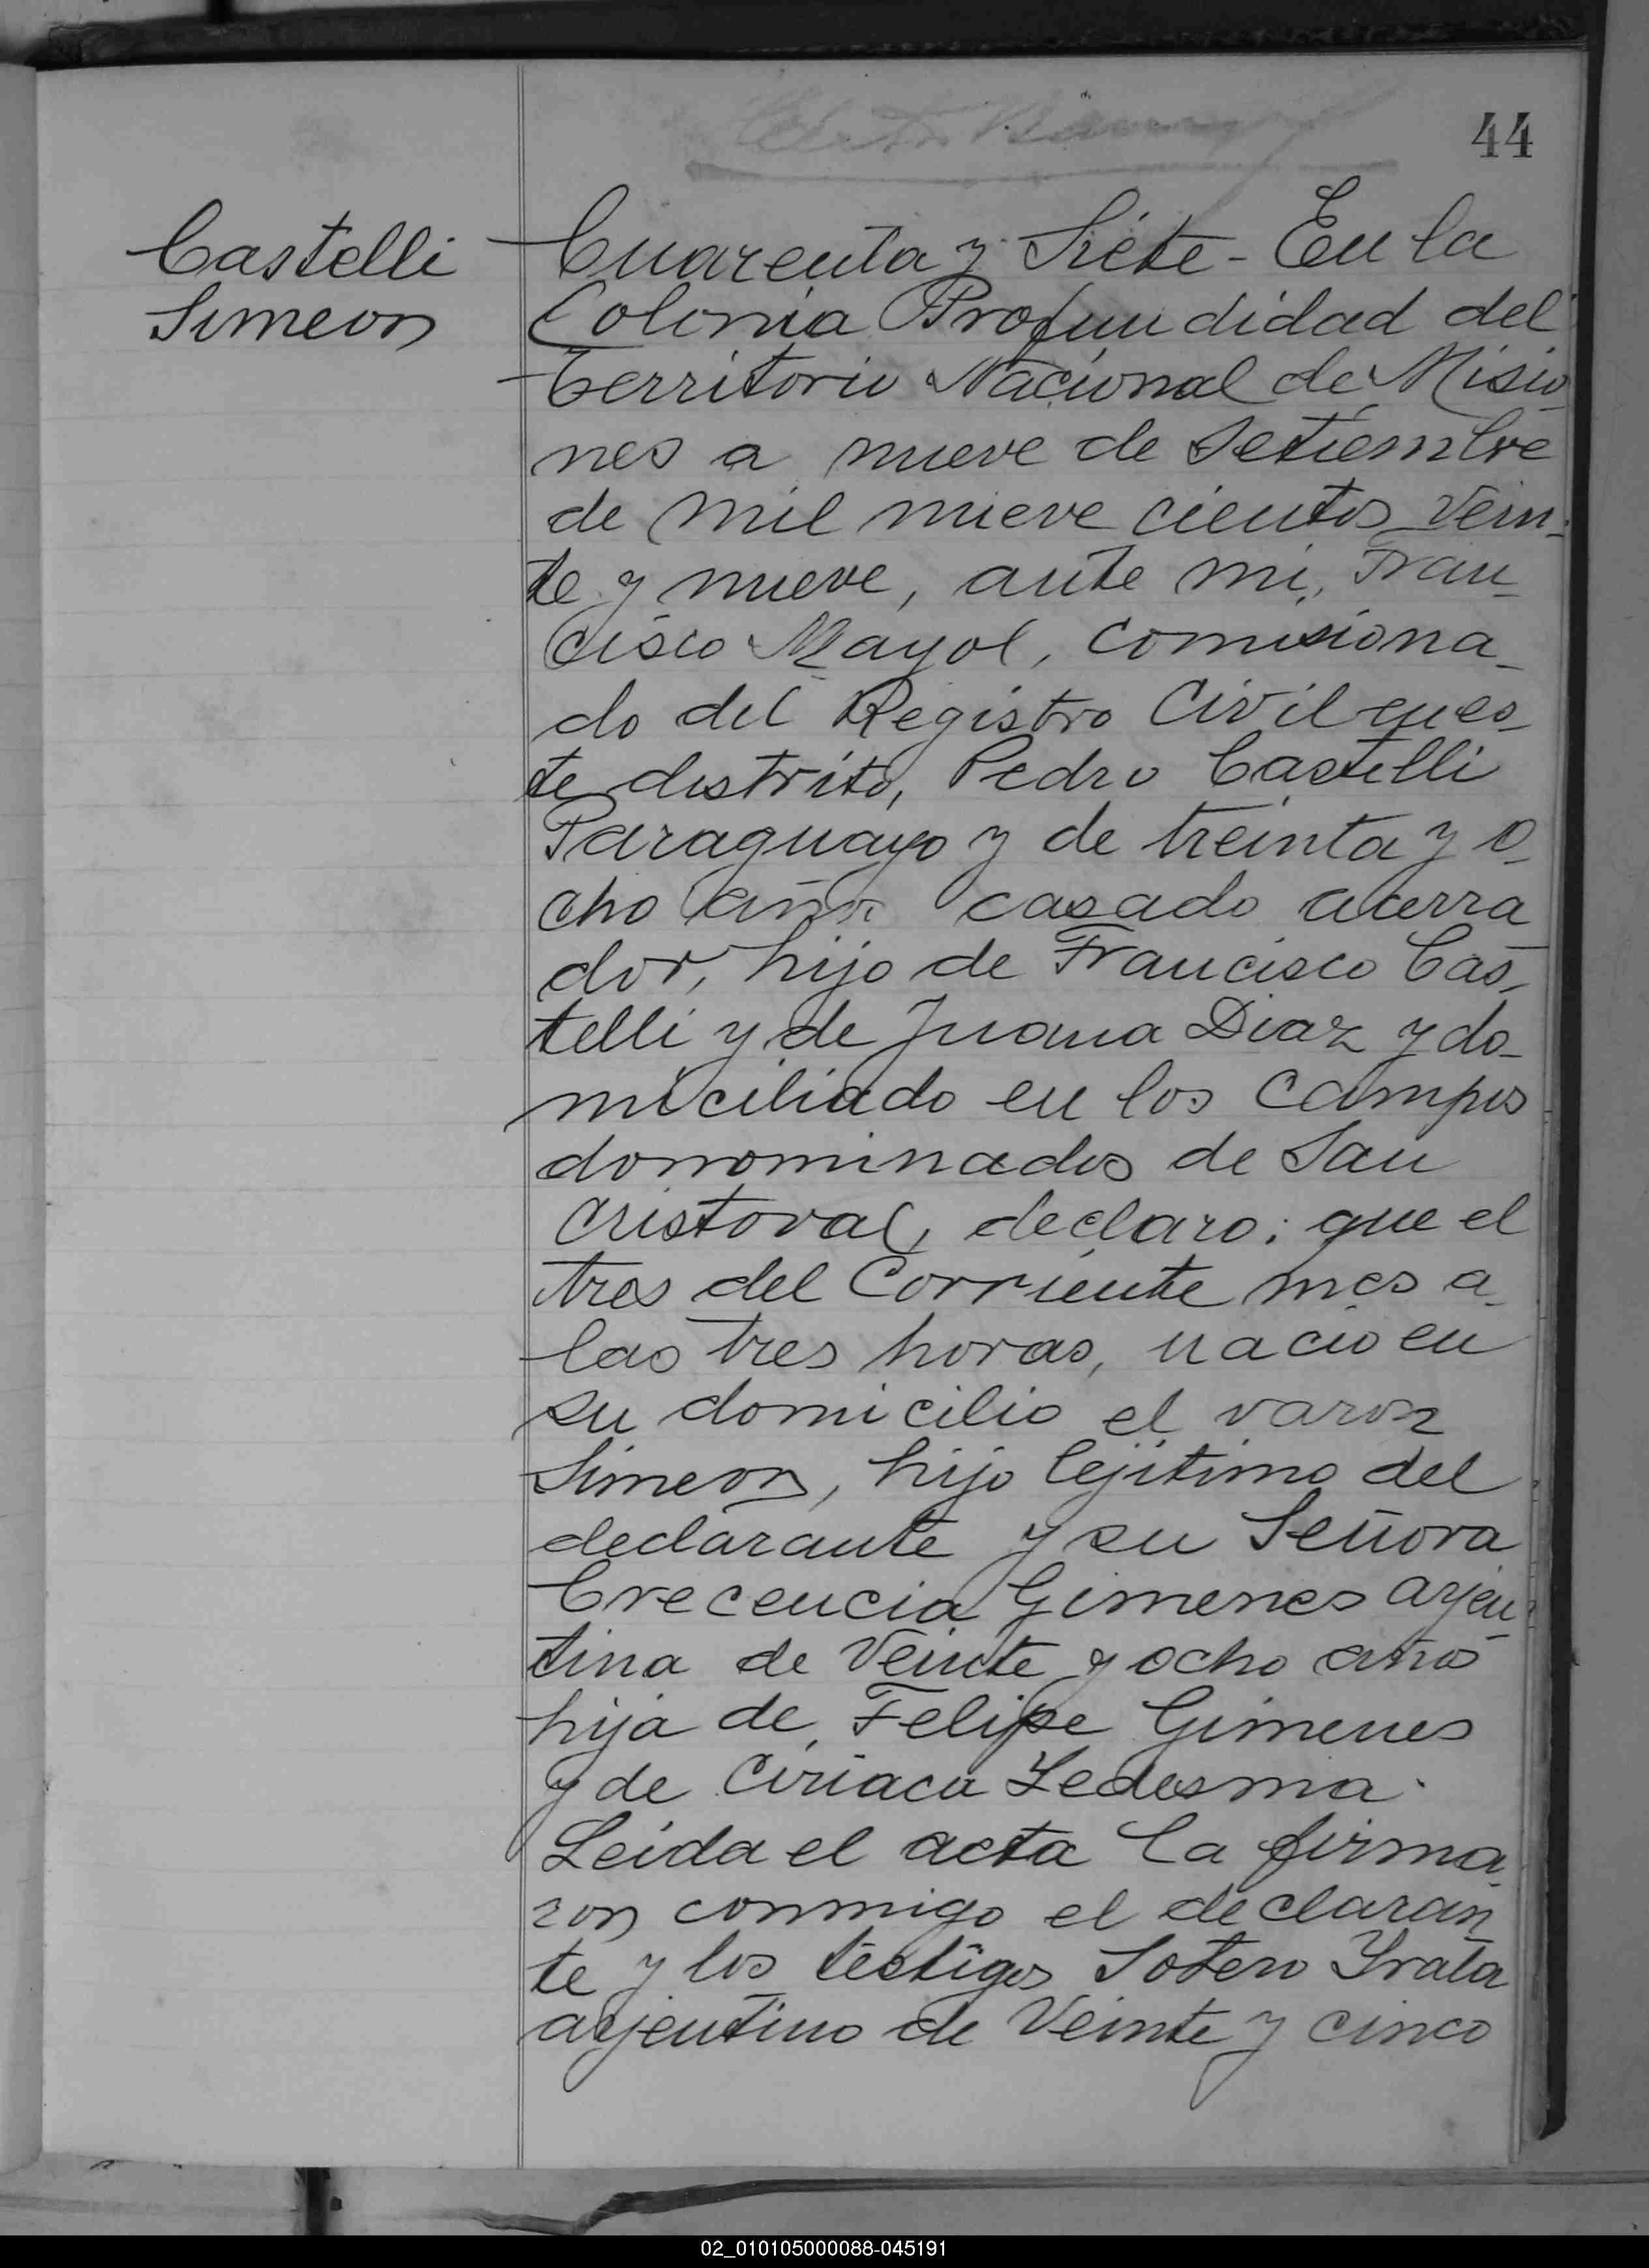 44
Castelli
Simeon
Cuarenta y Siete - En la
Colonia Profundidad del
Territorio Nacional de Misio
nes a nueve de Setiembre
de mil nueve cientos vein-
te y nueve, ante mi, Fran-
cisco Mayol, comisiona-
do del Registro Civil en es-
te distrito, Pedro Castelli
Paraguayo y de treinta y o-
cho años casado acerra
dor, hijo de Francisco Cas-
telli y de Juana Diaz y do-
miciliado en los campos
donominados de San
Cristoval, declaro: que el
tres del Corriente mes a
las tres horas, nacio en
su domicilio el varon
Simeon, hijo lejitimo del
declarante y su Señora
Crecencia Gimenes arjen
tina de Veinte y ocho años
hija de Felipe Gimenes
y de Ciriaca Ledesma.
Leida el acta la firma
ron conmigo el declaran
te y los testigos Sotero
arjentino de Veinte y cinco
02_010105000088-045191